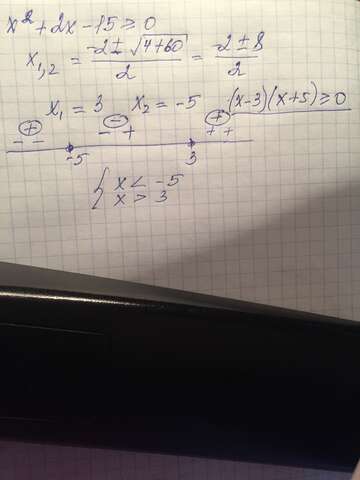 x² + 2x - 15 ≥ 0
x₁,₂ = (-2 ± √(4+60))/2 = (-2 ± 8)/2
x₁ = 3 x₂ = -5 (x-3)(x+5) ≥ 0
⊕ ⊖ ⊕
- - - + + +
-5 3
{ x < -5
x > 3